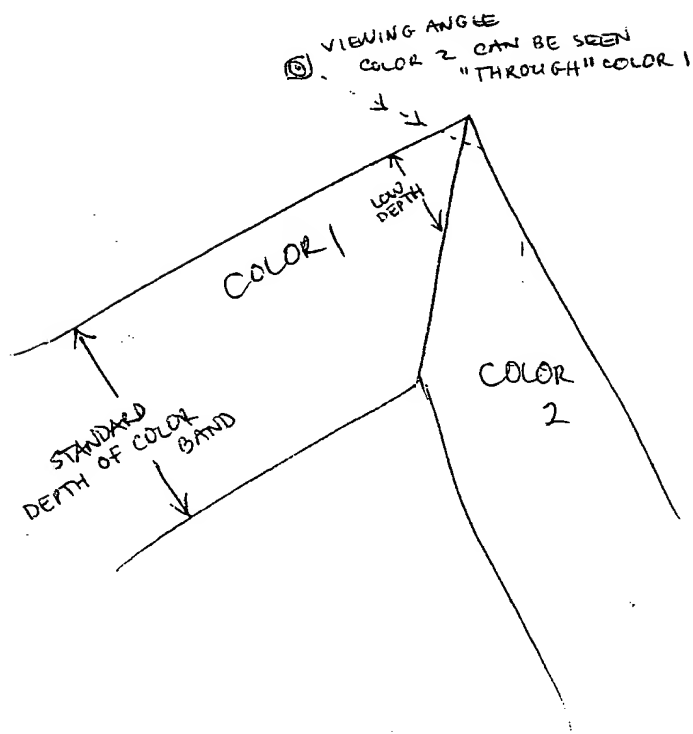 VIEWING ANGLE
COLOR 2 CAN BE SEEN
"THROUGH" COLOR 1
LOW
DEPTH
COLOR 1
STANDARD
DEPTH OF COLOR
BAND
COLOR
2